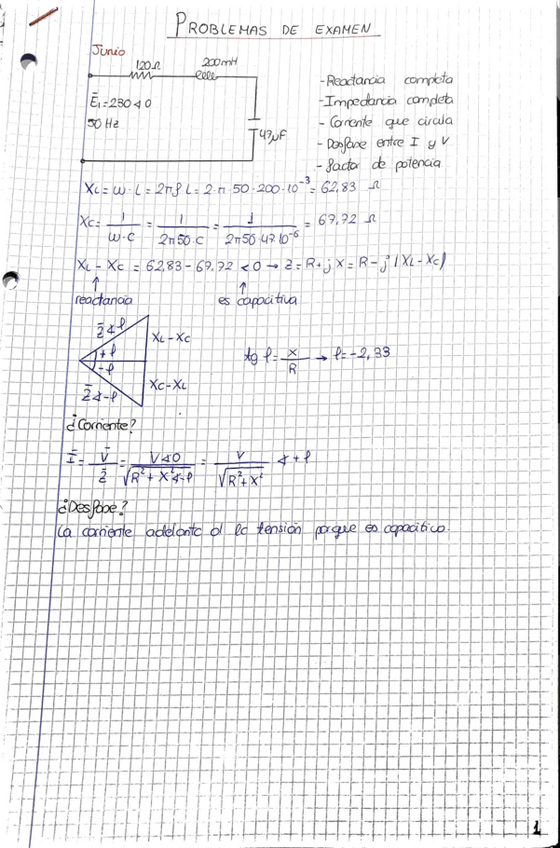 PROBLEMAS DE EXAMEN
Junio
120Ω 200mH
Ē₁=230∡0
50 Hz
47μF
-Reactancia completa
-Impedancia completa
- Corriente que circula
- Desfase entre I y V
- factor de potencia
XL = ω·L = 2πfL = 2·π·50·200·10⁻³ = 62,83 Ω
XC = 1/ω·C = 1/2π50·C = 1/2π50·47·10⁻⁶ = 67,72 Ω
XL - XC = 62,83 - 67,72 < 0 → Z = R+jX = R-j(XL-XC)
↑ ↑
reactancia es capacitiva
Z̄∡φ XL-XC
+φ
-φ
Z̄∡-φ XC-XL
tg φ = X/R → φ = -2,33
¿Corriente?
Ī = V̄/Z̄ = V∡0/√R²+X²∡-φ = V/√R²+X² ∡+φ
¿Desfase?
La corriente adelanta a la tensión porque es capacitivo.
1